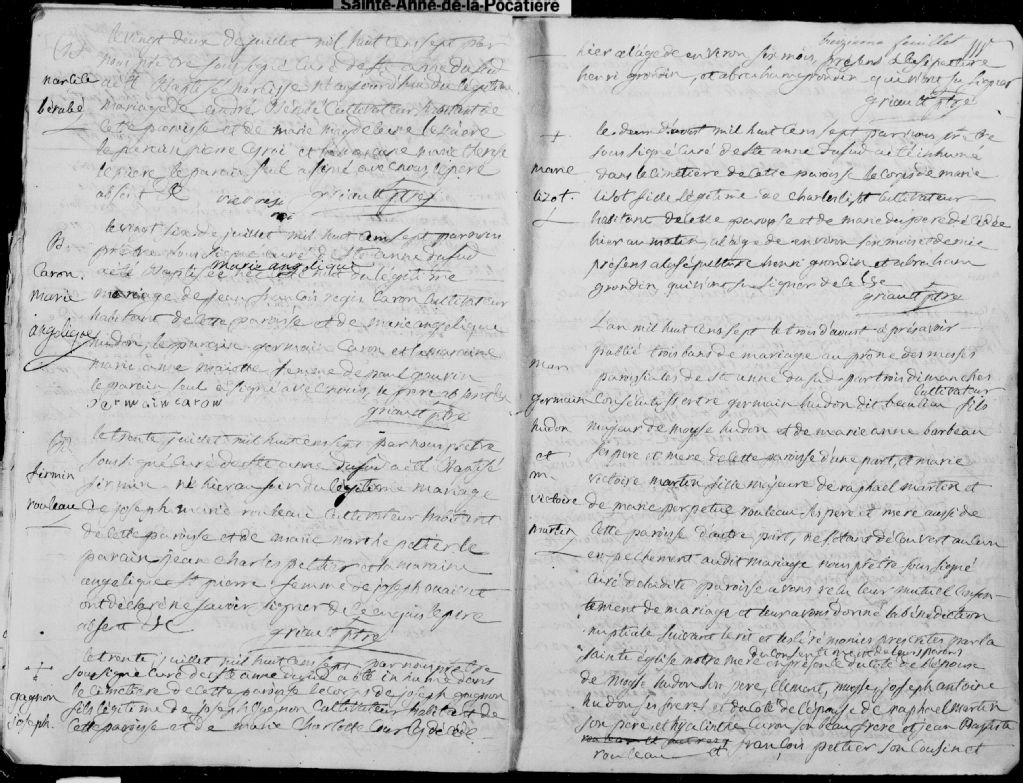 Sainte-Anne-de-la-Pocatière
B
narcisse
bérubé
le vingt deux de juillet mil huit cens sept par
nous prêtre sous signé curé de ste anne du sud
a été baptisé narcisse né aujourd'hui du légitime
mariage de andré Bérubé Cultivateur habitant de
cette paroisse et de marie magdeleine lepiere
le parain piere et la maraine marie therese
lepiere le parain seul a signé avec nous, le pere
absent &
griault ptre
B
Caron
marie
angelique
le vingt six de juillet mil huit cens sept par nous
prêtre sous signé curé de ste anne du sud
marie angelique
a été baptisée née hier du légitime
mariage de jean françois regis Caron Cultivateur
habitant de cette paroisse et de marie angelique
hudon, le parain germain Caron et la maraine
marie anne miotte femme de paul gauvin
le parain seul a signé avec nous, le pere absent &c
germain caron
griault ptre
B
firmin
rouleau
le trente juillet mil huit cens sept par nous prêtre
sous signé curé de ste anne du sud a été baptisé
firmin né hier au soir du légitime mariage
de joseph marie rouleau Cultivateur habitant
de cette paroisse et de marie marthe peltier le
parain jean charles peltier et la maraine
angelique st pierre femme de joseph ouai qui
ont déclaré ne savoir signer de ce enquis le pere
absent &c
griault ptre
+
gagnon
joseph
le trente juillet mil huit cens sept par nous prêtre
sous signé curé de ste anne du sud a été inhumé dans
le cimetiere de cette paroisse le corps de joseph gagnon
fils légitime de joseph Gagnon Cultivateur habitant de
cette paroisse et de marie Charlotte décédé
feuillet
hier a l'âge de environ six mois, présens à la sépulture
henri grondin, et abraham grondin qui n'ont su signer
griault ptre
+
marie
lizot
le deux d'aoust mil huit cens sept par nous prêtre
sous signé curé de ste anne du sud a été inhumé
dans le cimetière de cette paroisse le corps de marie
lizot fille légitime de charles lizot Cultivateur
habitant de cette paroisse et de marie dupere décédée
hier au matin, a l'âge de environ six mois et demie
présens a la sépulture henri grondin et abraham
grondin qui n'ont su signer de ce
griault ptre
Mari
germain
hudon
et
m
victoire
martin
L'an mil huit cens sept le trois d'aoust après avoir
publié trois bans de mariage au prone des messes
paroissiales de ste anne du sud par trois dimanches
Cultivateur
consécutifs entre germain hudon dit beaulieu fils
majeur de moyse hudon et de marie anne barbeau
ses pere et mere de cette paroisse d'une part, et marie
victoire martin fille majeure de raphael martin et
de marie perpetue rouleau ses pere et mere aussi de
cette paroisse d'autre part, ne s'étant découvert aucun
enpechement audit mariage nous prêtre sous signé
curé de ladite paroisse avons reçu leur mutuel Consen-
tement de mariage et leur avons donné la bénédiction
nuptiale suivant le rit et les cérémonies prescrites par la
du consentement de leurs parens
sainte église notre mere en présence du coté de l'epoux
de moyse hudon son pere, Clement, moyse, joseph antoine
hudon ses freres et du coté de l'épouse de raphael martin
son pere et hyacinthe Caron son beau frere et jean Baptiste
rouleau et françois peltier son cousin et